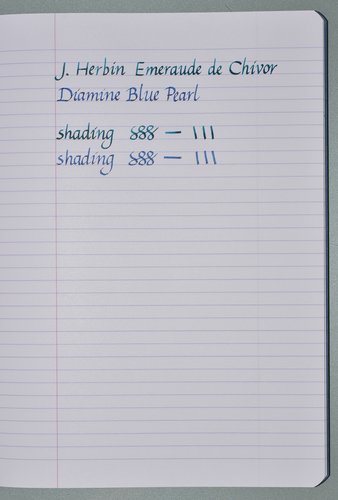 J. Herbin Emeraude de Chivor
Diamine Blue Pearl
shading 888 — 111
shading 888 — 111